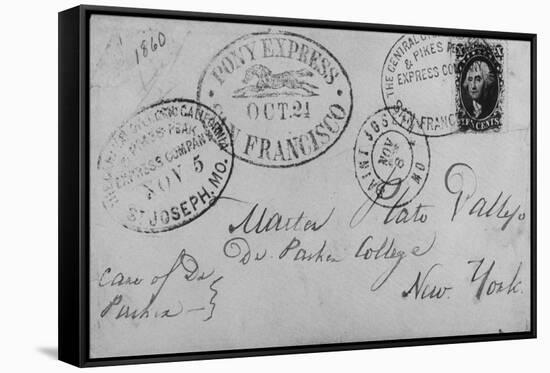 1860
PONY EXPRESS
OCT. 21
SAN FRANCISCO
THE CENTRAL
& PIKES PEAK
EXPRESS COMPANY
SAN FRANCISCO
TEN CENTS
CALIFORNIA
& PIKES PEAK
EXPRESS COMPANY
NOV 5
ST JOSEPH, MO.
SAINT JOSEPH MO
NOV
8
Master Plato Vallejo
Dr. Parker College
New York.
Care of Dr
Parker